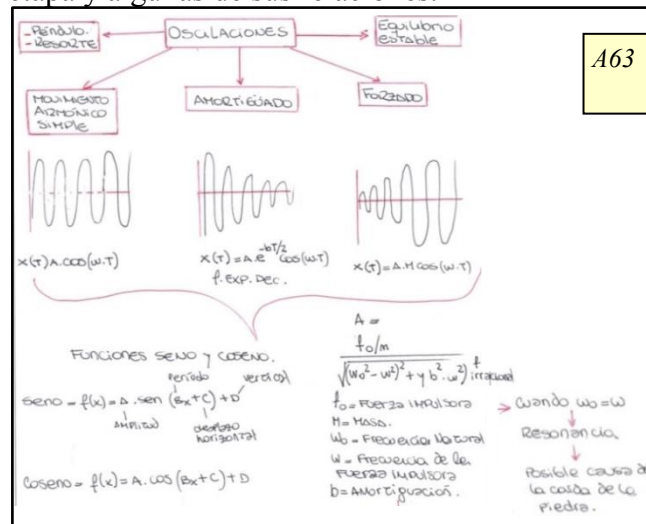 etapa y algunas de sus relaciones.
-Péndulo.
-RESORTE
OSCILACIONES
Equilibrio
estable
A63
MOVIMIENTO
ARMÓNICO
SIMPLE
AMORTIGÜADO
FORZADO
x(t)A.cos(w.T)
x(t)=A.e^-bT/2 cos(w.T)
f.EXP.Dec.
x(t)=A.M cos(w.T)
Funciones seno y coseno.
período
vertical
seno = f(x)=A.sen (Bx+C)+D
AMPLITUD
desplazo
horizontal
Coseno = f(x)=A.cos(Bx+C)+D
A =
fo/m
√(wo²-w²)²+yb².w²) f
irracional
fo=Fuerza impulsora
M=Masa.
Wo=Frecuencia Natural
w=Frecuencia de la
Fuerza impulsora
b=Amortiguación.
Cuando wo=w
Resonancia
Posible causa de
la caída de la
piedra.